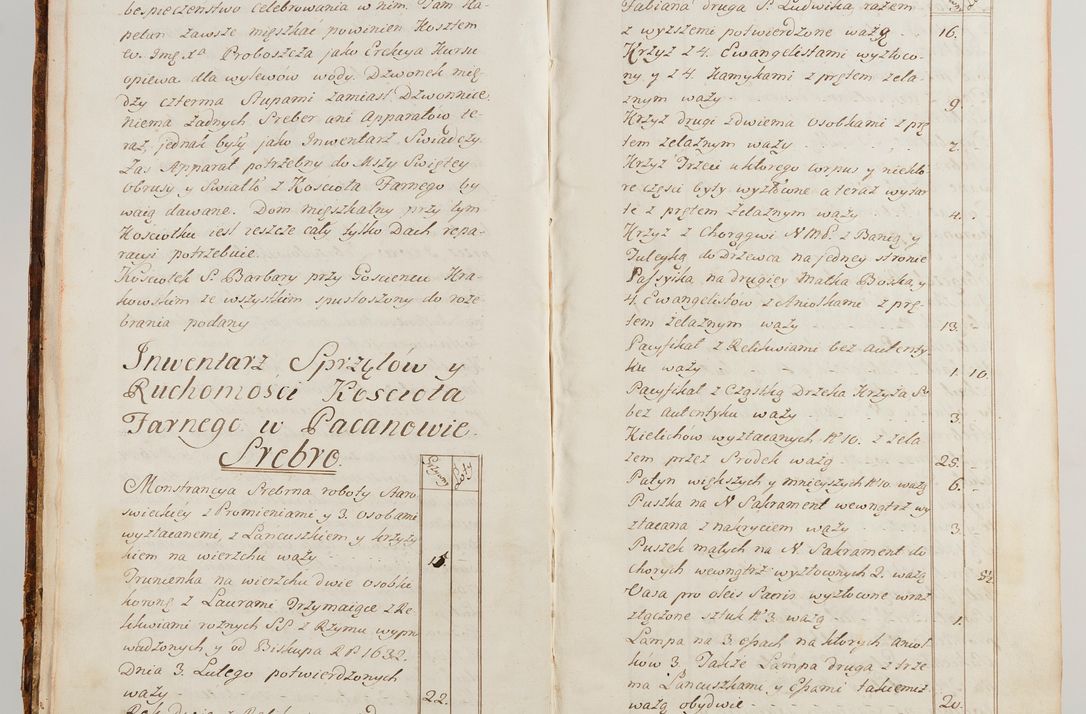 bezpieczenstwo celebrowania w nim. Tam Ka-
pelan zawsze mięszkać powinien Kosztem
Proboszcza jako Erekcya Kursu
opiewa dla wylewów wody. Dzwonek mię-
dzy czterma Słupami zamiast Dzwonnice
Niema żadnych Sreber ani Apparatów te-
raz, jednak były jako Inwentarz Swiadczy.
Zas Apparat potrzebny do Mszy Swiętey
Obrusy y Swiatło z Koscioła Farnego by-
waią dawane. Dom mięszkalny przy tym
Kosciołku iest ieszcze cały tylko Dach repa-
racyi potrzebuie.
Kosciołek S. Barbary przy Goscieńcu Kra-
kowskim ze wszystkim spustoszony do roze-
brania podany
Inwentarz Sprzętów y
Ruchomości Koscioła
Farnego w Pacanowie.
Srebro.
Monstrancya Srebrna roboty Staro-
swieckiey z Promieniami y 3. osobami
wyzłacanemi, z Łancuszkiem y krzyży-
kiem na wierzchu waży
Trunienka na wierzchu dwie osobki
koronę z Laurami Trzymaiące z Re-
likwiami roznych SS z Rzymu wypro-
wadzonych y od Biskupa R P 1632.
Dnia 3. Lutego potwierdzonych
waży 22.
Fabiana druga S. Ludwika razem
z wyzszemi potwierdzone ważą 16.
Krzyż z 4. Ewangelistami wyzłoco-
ny y z 4. Kamykami z prętem żela-
znym waży 9
Krzyż drugi z dwiema osobkami z prę-
tem żelaznym waży 7.
Krzyż Trzeci u ktorego corpus y niektó-
re części były wyzłocone a teraz wytar-
te z prętem żelaznym waży 4.
Krzyż z Chorągwi z Banią y
Tuleyką do Drzewca na jedney stronie
Passyika na drugiey Matka Boska, y
4. Ewangelistow z Aniołkami z prę-
tem żelaznym waży 13.
Pacyfikał z Relikwiami bez autenty-
ku waży 1. 10.
Pacyfikał z Cząstką Drzewa Krzyża S.
bez autentyku waży 3.
Kielichów wyzłacanych N 10. z żela-
zem przez Srodek ważą 25.
Patyn większych y mnieyszych N 10. ważą 6.
Puszka na N Sakrament wewnątrz wy-
złacana z nakryciem waży 3.
Puszek małych na N. Sakrament do
Chorych wewnątrz wyzłoconych 2. ważą 5½
Vasa pro oleis Sacris wyzłocone wraz
złączone sztuk N 3. ważą 1.
Lampa na 3 esach na których Anioł-
ków 3. Także Lampa druga z trze-
ma Łancuszkami y Esami takiemiż
ważą obydwie 20.